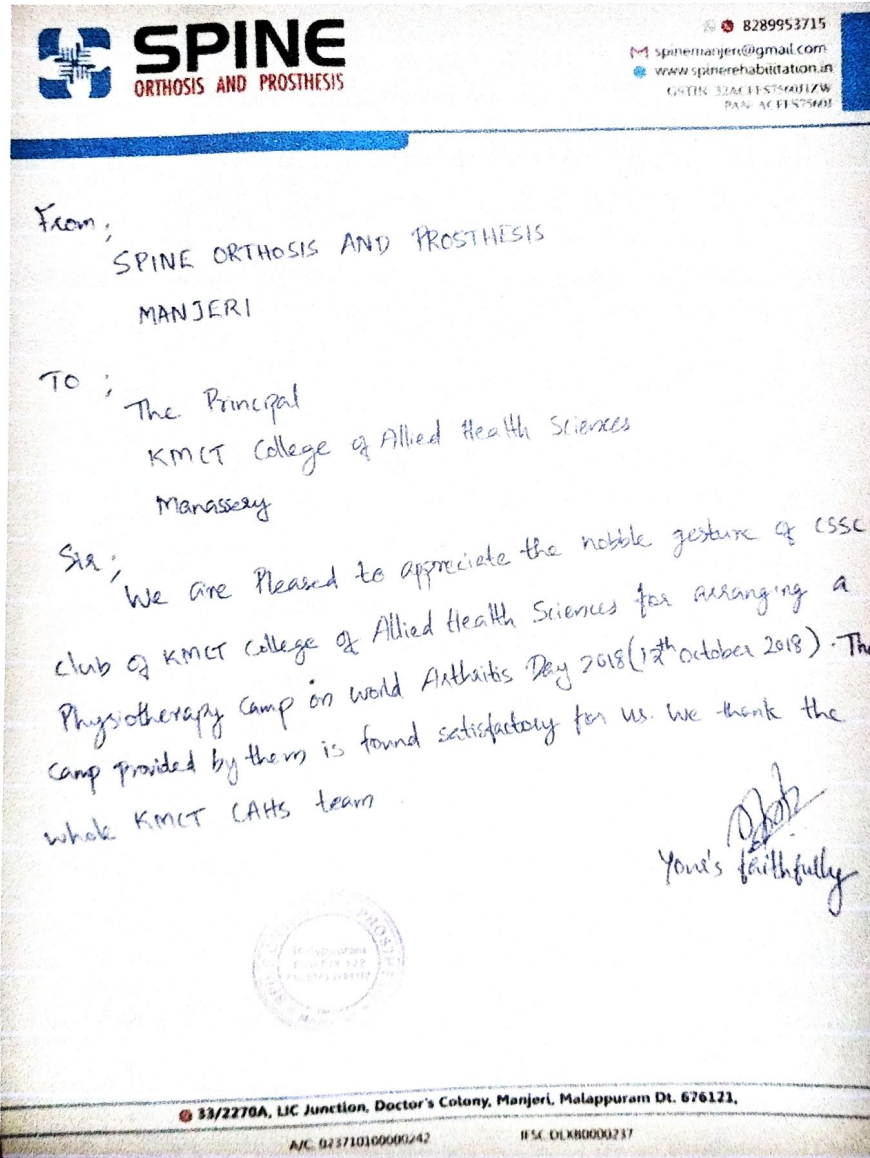 SPINE
ORTHOSIS AND PROSTHESIS
8289953715
spinemanjeri@gmail.com
www.spinerehabilitation.in
GSTIN
PAN
From;
SPINE ORTHOSIS AND PROSTHESIS
MANJERI
TO ;
The Principal
KMCT College of Allied Health Sciences
Manassery
Sir;
We are Pleased to appreciate the nobble gesture of CSSC
club of KMCT College of Allied Health Sciences for arranging a
Physiotherapy Camp on world Arthritis Day 2018(12th october 2018). The
Camp provided by them is found satisfactory for us. We thank the
whole KMCT CAHS team
Your's faithfully
33/2270A, LIC Junction, Doctor's Colony, Manjeri, Malappuram Dt. 676121,
A/C 023710100000242
IFSC